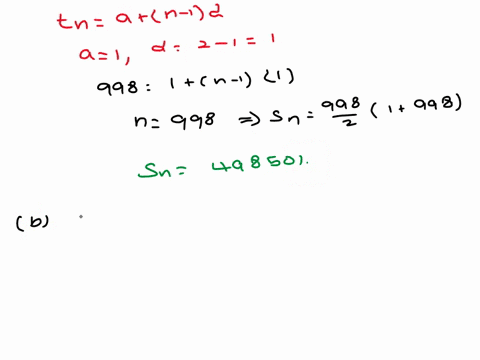 tn = a+(n-1)d
a=1, d = 2-1 = 1
998 = 1+(n-1) (1)
n = 998 ⇒ Sn = 998/2 (1+998)
Sn = 498501.
(b)